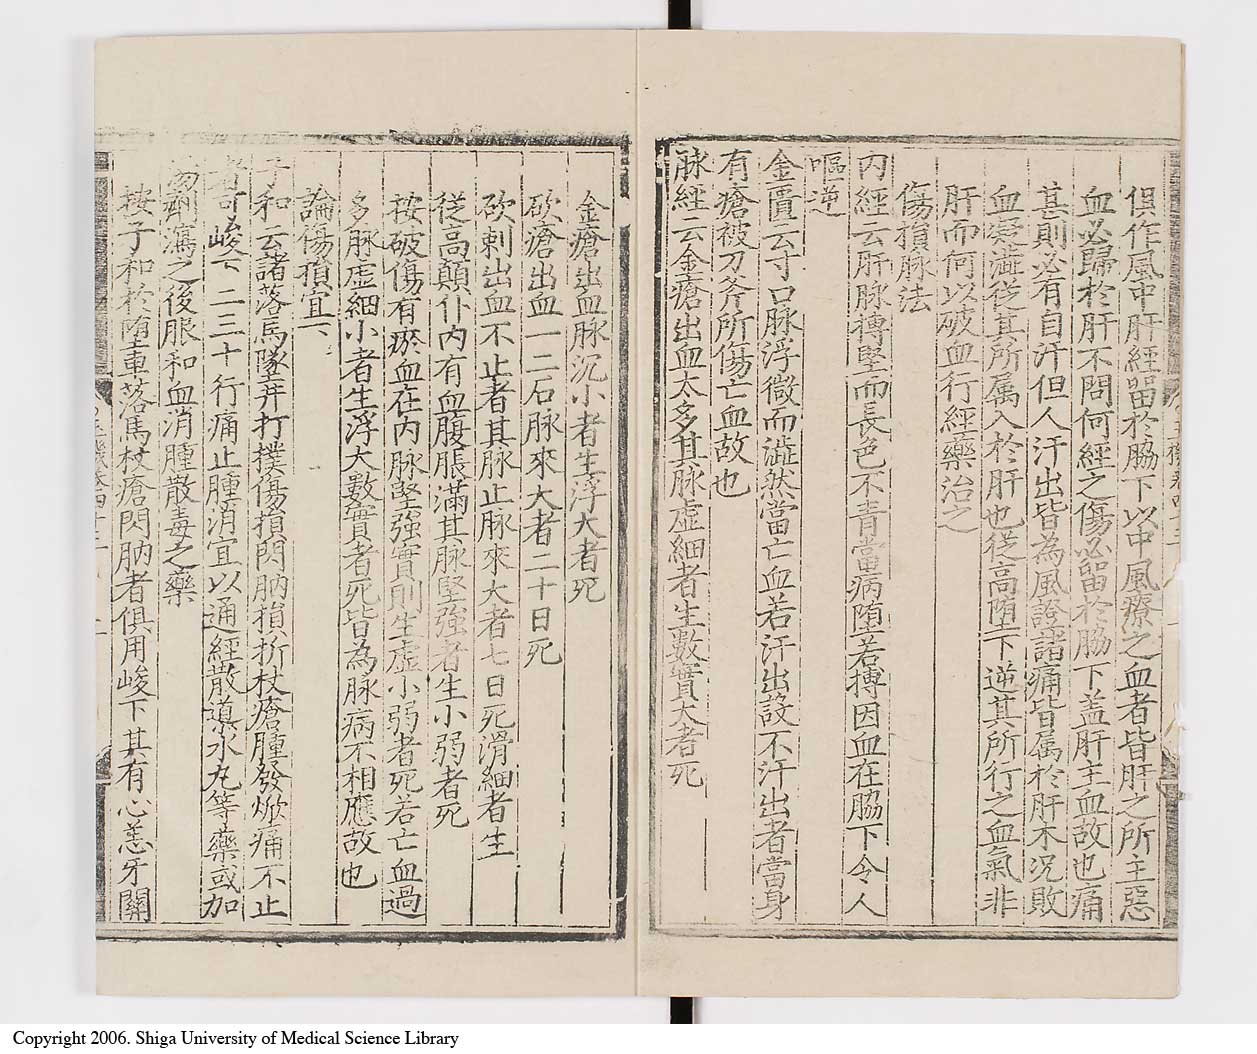 俱作風中肝經留於脇下以中風療之血者皆肝之所主惡
血必歸於肝不問何經之傷必留於脇下盖肝主血故也痛
甚則必有自汗但人汗出皆為風證諸痛皆属於肝木况敗
血凝澁從其所属入於肝也從高墮下逆其所行之血氣非
肝而何以破血行經藥治之
傷損脉法
内經云肝脉搏堅而長色不青當病墮若搏因血在脇下令人
嘔逆
金匱云寸口脉浮微而澁然當亡血若汗出設不汗出者當身
有瘡被刀斧所傷亡血故也
脉經云金瘡出血太多其脉虚細者生數實大者死
金瘡出血脉沉小者生浮大者死
砍瘡出血一二石脉來大者二十日死
砍刺出血不止者其脉止脉來大者七日死滑細者生
從高顛仆内有血腹脹滿其脉堅強者生小弱者死
按破傷有瘀血在内脉堅強實則生虚小弱者死若亡血過
多脉虚細小者生浮大數實者死皆為脉病不相應故也
論傷損宜下
子和云諸落馬墜井打撲傷損閃肭損折杖瘡腫發焮痛不止
者可峻下二三十行痛止腫消宜以通經散導水丸等藥或加
湯劑瀉之後服和血消腫散毒之藥
按子和於墮車落馬杖瘡閃肭者俱用峻下其有心恙牙關
Copyright 2006. Shiga University of Medical Science Library